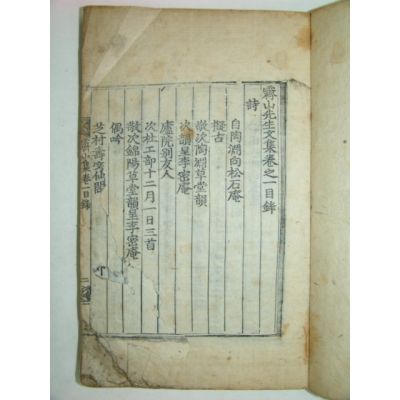 霽山先生文集卷之一目錄
詩
自陶淵向松石庵
擬古
敬次陶淵草堂韻
次韻呈李密庵
廬院別友人
次杜工部十二月一日三首
敬次錦陽草堂韻呈李密庵
偶吟
芝村壽宴仙閣
霽山集卷一目錄